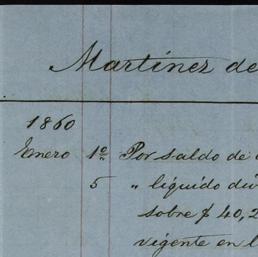 Martínez de
1860
Enero 1º Por saldo de
5 " líquido div
sobre $ 40,2
vigente en l